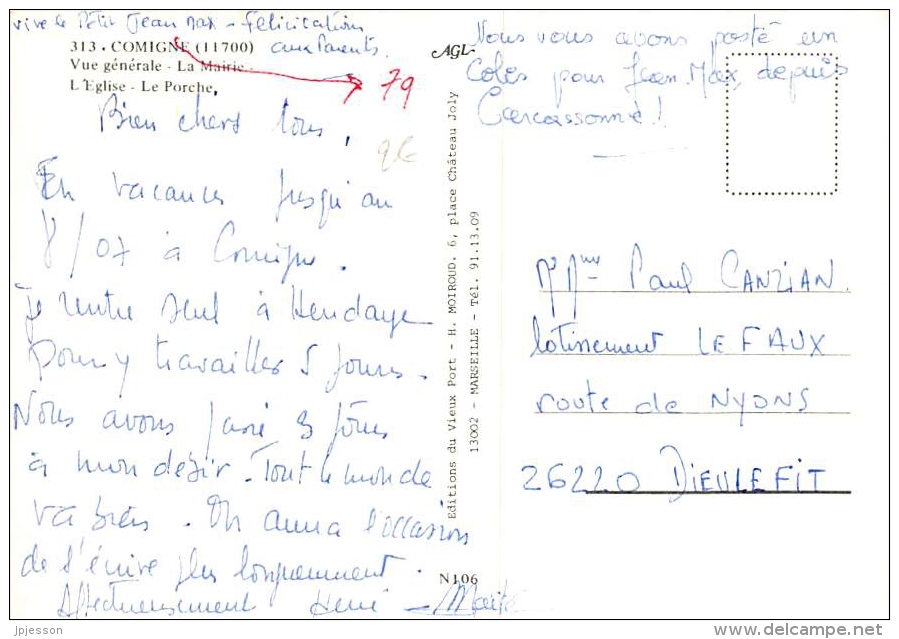 vive le Petit Jean Max - Félicitations
aux Parents.
313 . COMIGNE (11700)
Vue générale - La Mairie -
L'Eglise - Le Porche,
79
2€
Bien chers tous,
En vacances jusqu'au
8/07 à Comigne.
Je rentre seul à Hendaye
pour y travailler 5 jours.
Nous avons passé 3 jours
à mon désir. Tout le monde
va bien. On aura l'occasion
de s'écrire plus longuement.
Affectueusement René - Maïté
AGL
Editions du Vieux Port - H. MOIROUD. 6, place Château Joly
13002 - MARSEILLE - Tél. 91.13.09
N106
Nous vous avons posté un
Colis pour Jean Max, depuis
Carcassonne!
Mr Mme Paul CANZIAN
lotissement LE FAUX
route de NYONS
26220 DIEULEFIT
jpjesson
delcampe.net